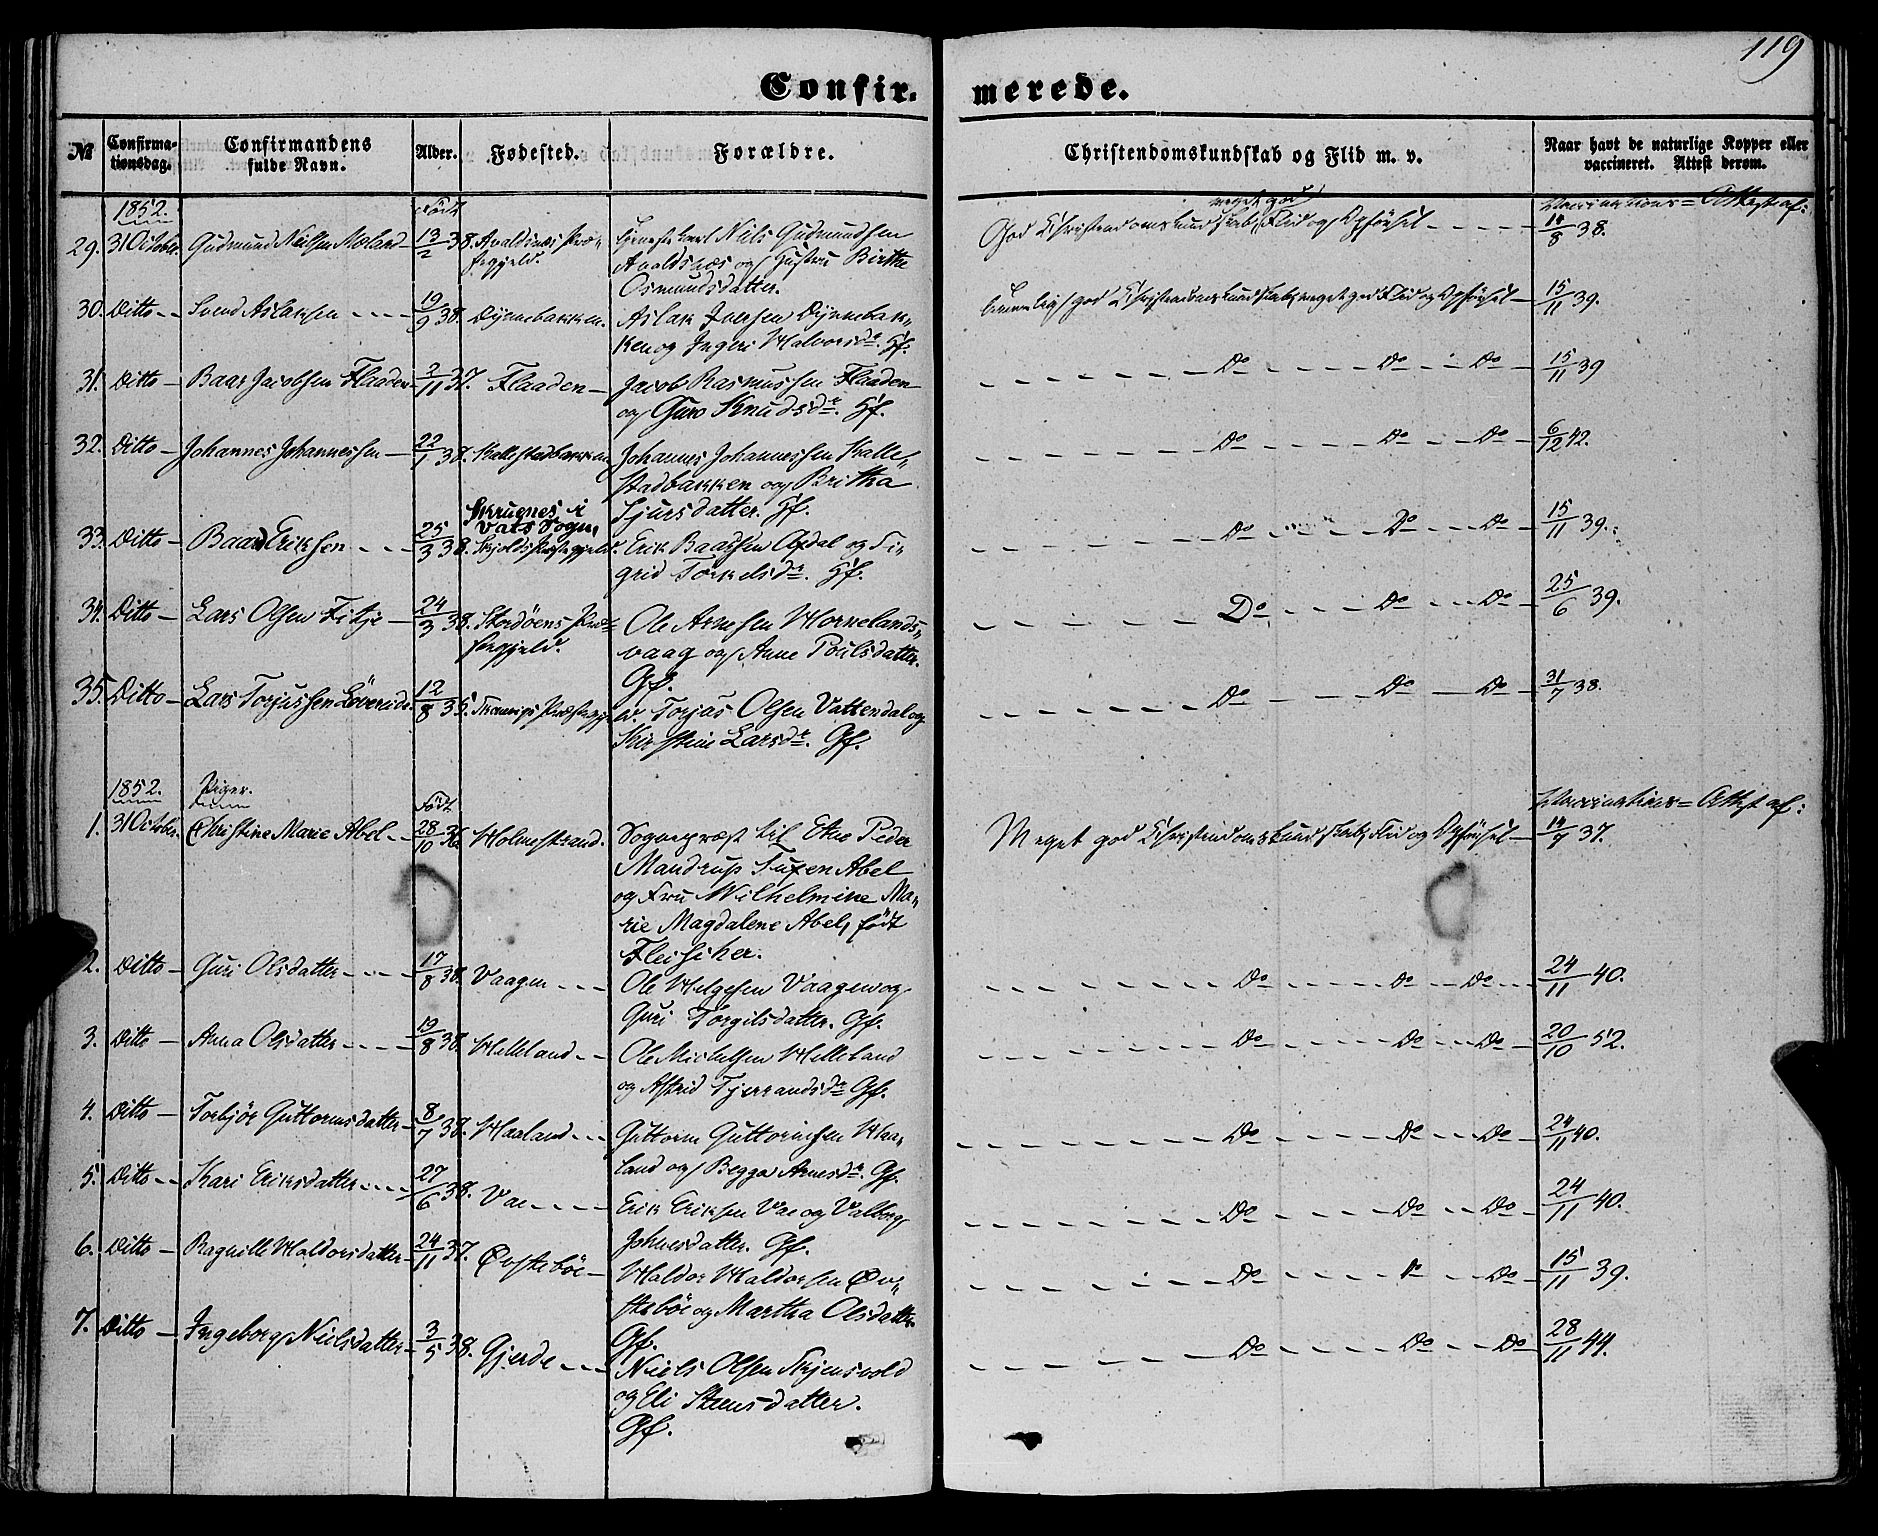 119
Confir.
merede.
№
Confirma-
tionsdag.
Confirmandens
fulde Navn.
Alder.
Fødested.
Forældre.
Christendomskundskab og Flid m. v.
Naar havt de naturlige Kopper eller
vaccineret. Attest derom.
1852.
Født
Vaccinations= Attest af:
29. 31 October. Gudmund Nielsen Mæland 13/2 38. Avaldsnæs Præ-
stegjeld.
Tjenestekarl Niels Gudmundsen
Avaldsnæs og Hustru Birthe
Osmundsdatter.
meget god
God Christendomskundskab, Flid og Opførsel 14/8 38.
30. Ditto Svend Aslaksen 19/9 38. Dynnebakken.
Aslak Iversen Dynnebak-
ken og Ingeri Halvorsdr. Gf.
temmelig god Christendomskundskab, meget god Flid og Opførsel 15/11 39.
31. Ditto Baar Jacobsen Flaaden 3/11 37. Flaaden
Jacob Rasmussen Flaaden
og Guro Knudsdr. Gf.
Do Do Do 15/11 39
32. Ditto Johannes Johannessen 22/1 38. Kallestadbakken
Johannes Johannessen Kalle-
stadbakken og Britha
Sjursdatter. Gf.
Do Do Do 6/12 42.
33. Ditto Baard Eriksen 25/3 38.
Skruenes i
Vats Sogn,
Skjolds Præstegjeld.
Erik Baardsen Axdal og Si-
grid Torkelsdr. Gf.
Do Do Do 15/11 39.
34. Ditto Lars Olsen Fitje 24/3 38. Stordöens Præ-
stegjeld.
Ole Arnesen Hornelands-
vaag og Anne Poulsdatter.
Gf.
Do Do Do 25/6 39.
35. Ditto Lars Torjussen 12/8 35. Præstegj.
Torjus Olsen Vattendal og
Kirstine Larsdr. Gf.
Do Do Do 31/7 38.
1852. Piger. Født
Vaccinations= Attest af:
1. 31 October. Christine Marie Abel 28/10 36. Holmestrand.
Sognepræst til Etne Peder
Mandrup Tuxen Abel
og Fru Wilhelmine Ma-
rie Magdalene Abel, født
Fleischer.
Meget god Christendomskundskab, Flid og Opførsel 14/7 37.
2. Ditto Guri Olsdatter 17/8 38. Vaagen
Ole Helgesen Vaagen og
Guri Torgilsdatter. Gf.
Do Do Do 24/11 40.
3. Ditto Anna Olsdatter 19/8 38. Helleland
Ole Michelsen Helleland
og Astrid Tjerrandsdr Gf.
Do Do Do 20/10 52.
4. Ditto Torbjör Guttormsdatter 8/7 38. Haaland
Guttorm Guttormsen Haa-
land og Begga Arnesdr. Gf.
Do Do Do 24/11 40.
5. Ditto Kari Eriksdatter 27/6 38. Vae
Erik Eriksen Vae og Valborg
Johnesdatter. Gf.
Do Do Do 24/11 40.
6. Ditto Ragnille Haldorsdatter 24/11 37. Øvstebøe
Haldor Haldorsen Øv-
stebøe og Martha Olsdatter
Gf.
Do Do Do 15/11 39.
7. Ditto Ingeborg Nielsdatter 3/5 38. Gjerde
Niels Olsen Skjensvold
og Eli Steensdatter.
Gf.
Do Do Do 28/11 44.